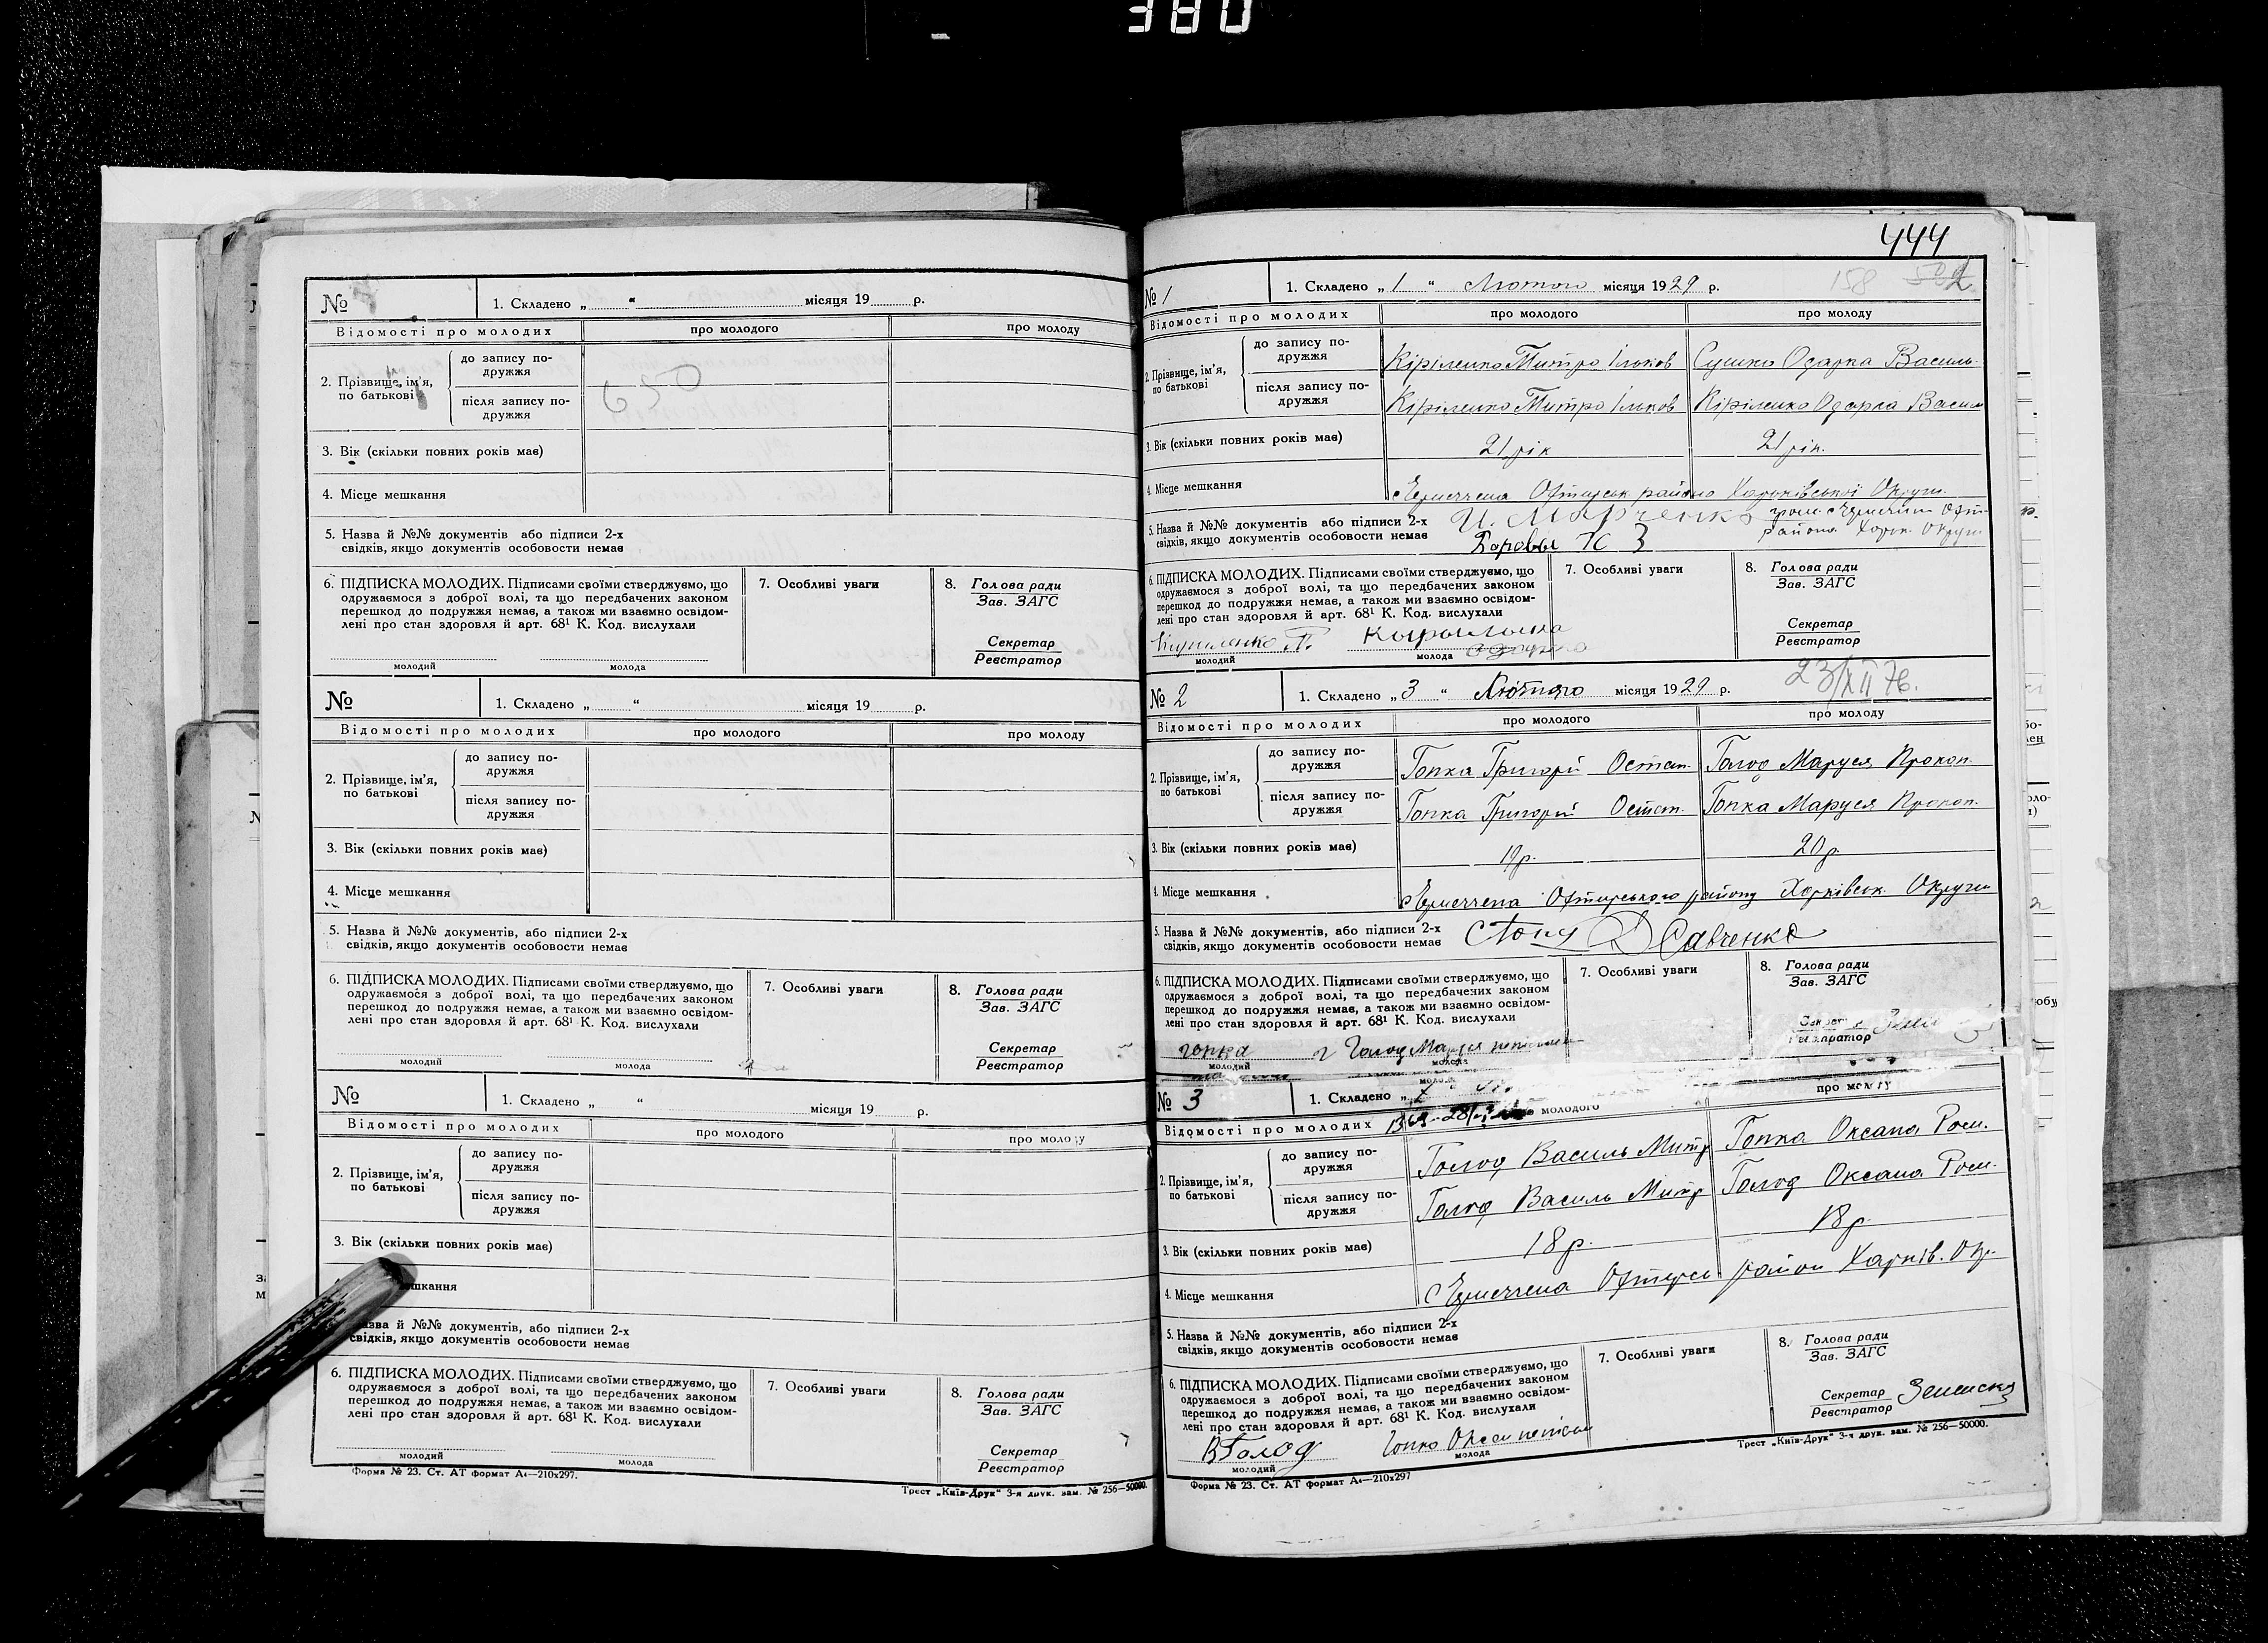 380
№
1. Складено „ “ місяця 19 р.
Відомості про молодих про молодого про молоду
2. Прізвище, ім'я, по батькові
до запису по-
дружжя
після запису по-
дружжя
650
3. Вік (скільки повних років має)
4. Місце мешкання
5. Назва й №№ документів або підписи 2-х
свідків, якщо документів особовости немає
6. ПІДПИСКА МОЛОДИХ. Підписами своїми стверджуємо, що
одружаємося з доброї волі, та що передбачених законом
перешкод до подружжя немає, а також ми взаємно освідом-
лені про стан здоровля й арт. 68¹ К. Код. вислухали
молодий молода
7. Особливі уваги
8. Голова ради
Зав. ЗАГС
Секретар
Реєстратор
№
1. Складено „ “ місяця 19 р.
Відомості про молодих про молодого про молоду
2. Прізвище, ім'я,
по батькові
до запису по-
дружжя
після запису по-
дружжя
3. Вік (скільки повних років має)
4. Місце мешкання
5. Назва й №№ документів, або підписи 2-х
свідків, якщо документів особовости немає
6. ПІДПИСКА МОЛОДИХ. Підписами своїми стверджуємо, що
одружаємося з доброї волі, та що передбачених законом
перешкод до подружжя немає, а також ми взаємно освідом-
лені про стан здоровля й арт. 68¹ К. Код. вислухали
молодий молода
7. Особливі уваги
8. Голова ради
Зав. ЗАГС
Секретар
Реєстратор
№
1. Складено „ “ місяця 19 р.
Відомості про молодих про молодого про молоду
2. Прізвище, ім'я,
по батькові
до запису по-
дружжя
після запису по-
дружжя
3. Вік (скільки повних років має)
шкання
азва й №№ документів, або підписи 2-х
свідків, якщо документів особовости немає
6. ПІДПИСКА МОЛОДИХ. Підписами своїми стверджуємо, що
одружаємося з доброї волі, та що передбачених законом
перешкод до подружжя немає, а також ми взаємно освідом-
лені про стан здоровля й арт. 68¹ К. Код. вислухали
молодий молода
7. Особливі уваги
8. Голова ради
Зав. ЗАГС
Секретар
Реєстратор
Форма № 23. Ст. АТ формат А4—210х297.
Трест „Київ-Друк“ 3-я друк. зам. № 256—50000.
444
158
№ 1
1. Складено „ 1 “ Лютого місяця 1929 р.
Відомості про молодих про молодого про молоду
2. Прізвище, ім'я,
по батькові
до запису по-
дружжя
Кіріленко Митро Ільков Сушко Одарка Василь.
після запису по-
дружжя
Кіріленко Митро Ільков Кіріленко Одарка Васил
3. Вік (скільки повних років має) 21 рік 21 рік.
4. Місце мешкання района Харківської Округи
5. Назва й №№ документів або підписи 2-х
свідків, якщо документів особовости немає
И. Марченко
района Харк. Округи
6. ПІДПИСКА МОЛОДИХ. Підписами своїми стверджуємо, що
одружаємося з доброї волі, та що передбачених законом
перешкод до подружжя немає, а також ми взаємно освідом-
лені про стан здоровля й арт. 68¹ К. Код. вислухали
молодий молода
7. Особливі уваги
8. Голова ради
Зав. ЗАГС
Секретар
Реєстратор
№ 2
1. Складено „ 3 “ Лютого місяця 1929 р.
23/XII 76.
Відомості про молодих про молодого про молоду
2. Прізвище, ім'я,
по батькові
до запису по-
дружжя
Гопка Григорій Остап. Голод Маруся Прокоп.
після запису по-
дружжя
Гопка Григорій Остап. Гопка Маруся Прокоп.
3. Вік (скільки повних років має) 19 р. 20 р.
4. Місце мешкання району Харківськ. Округи
5. Назва й №№ документів, або підписи 2-х
свідків, якщо документів особовости немає
Савченко
6. ПІДПИСКА МОЛОДИХ. Підписами своїми стверджуємо, що
одружаємося з доброї волі, та що передбачених законом
перешкод до подружжя немає, а також ми взаємно освідом-
лені про стан здоровля й арт. 68¹ К. Код. вислухали
гопка Голод Маруся
молодий молода
7. Особливі уваги
8. Голова ради
Зав. ЗАГС
Секретар
Реєстратор
№ 3
1. Складено „
Відомості про молодих молодого про молоду
2. Прізвище, ім'я,
по батькові
до запису по-
дружжя
Голод Василь Митр Гопка Оксана Ром.
після запису по-
дружжя
Голод Василь Митр Голод Оксана Ром.
3. Вік (скільки повних років має) 18 р. 18 р.
4. Місце мешкання район Харків. Окр.
5. Назва й №№ документів, або підписи 2-х
свідків, якщо документів особовости немає
6. ПІДПИСКА МОЛОДИХ. Підписами своїми стверджуємо, що
одружаємося з доброї волі, та що передбачених законом
перешкод до подружжя немає, а також ми взаємно освідом-
лені про стан здоровля й арт. 68¹ К. Код. вислухали
В Голод Гопко Оксан
молодий молода
7. Особливі уваги
8. Голова ради
Зав. ЗАГС
Секретар
Реєстратор
Форма № 23. Ст. АТ формат А4—210х297
Трест „Київ-Друк“ 3-я друк. зам. № 256—50000.